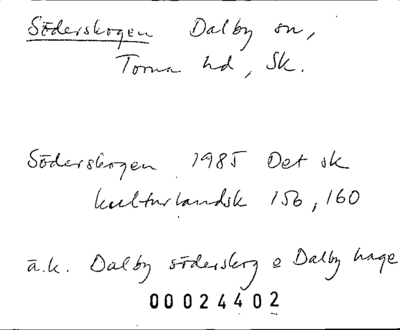 Söderskogen Dalby sn,
Torna hd, Sk.
Söderskogen 1985 Det sk
kulturlandsk 156, 160
ä.k. Dalby söderskog o Dalby hage
00024402